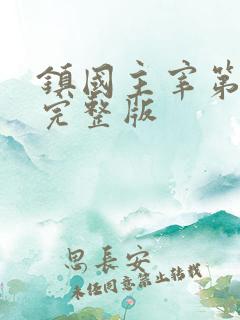 鎮國主宰第
完整版
思長安
未经同意禁止转载